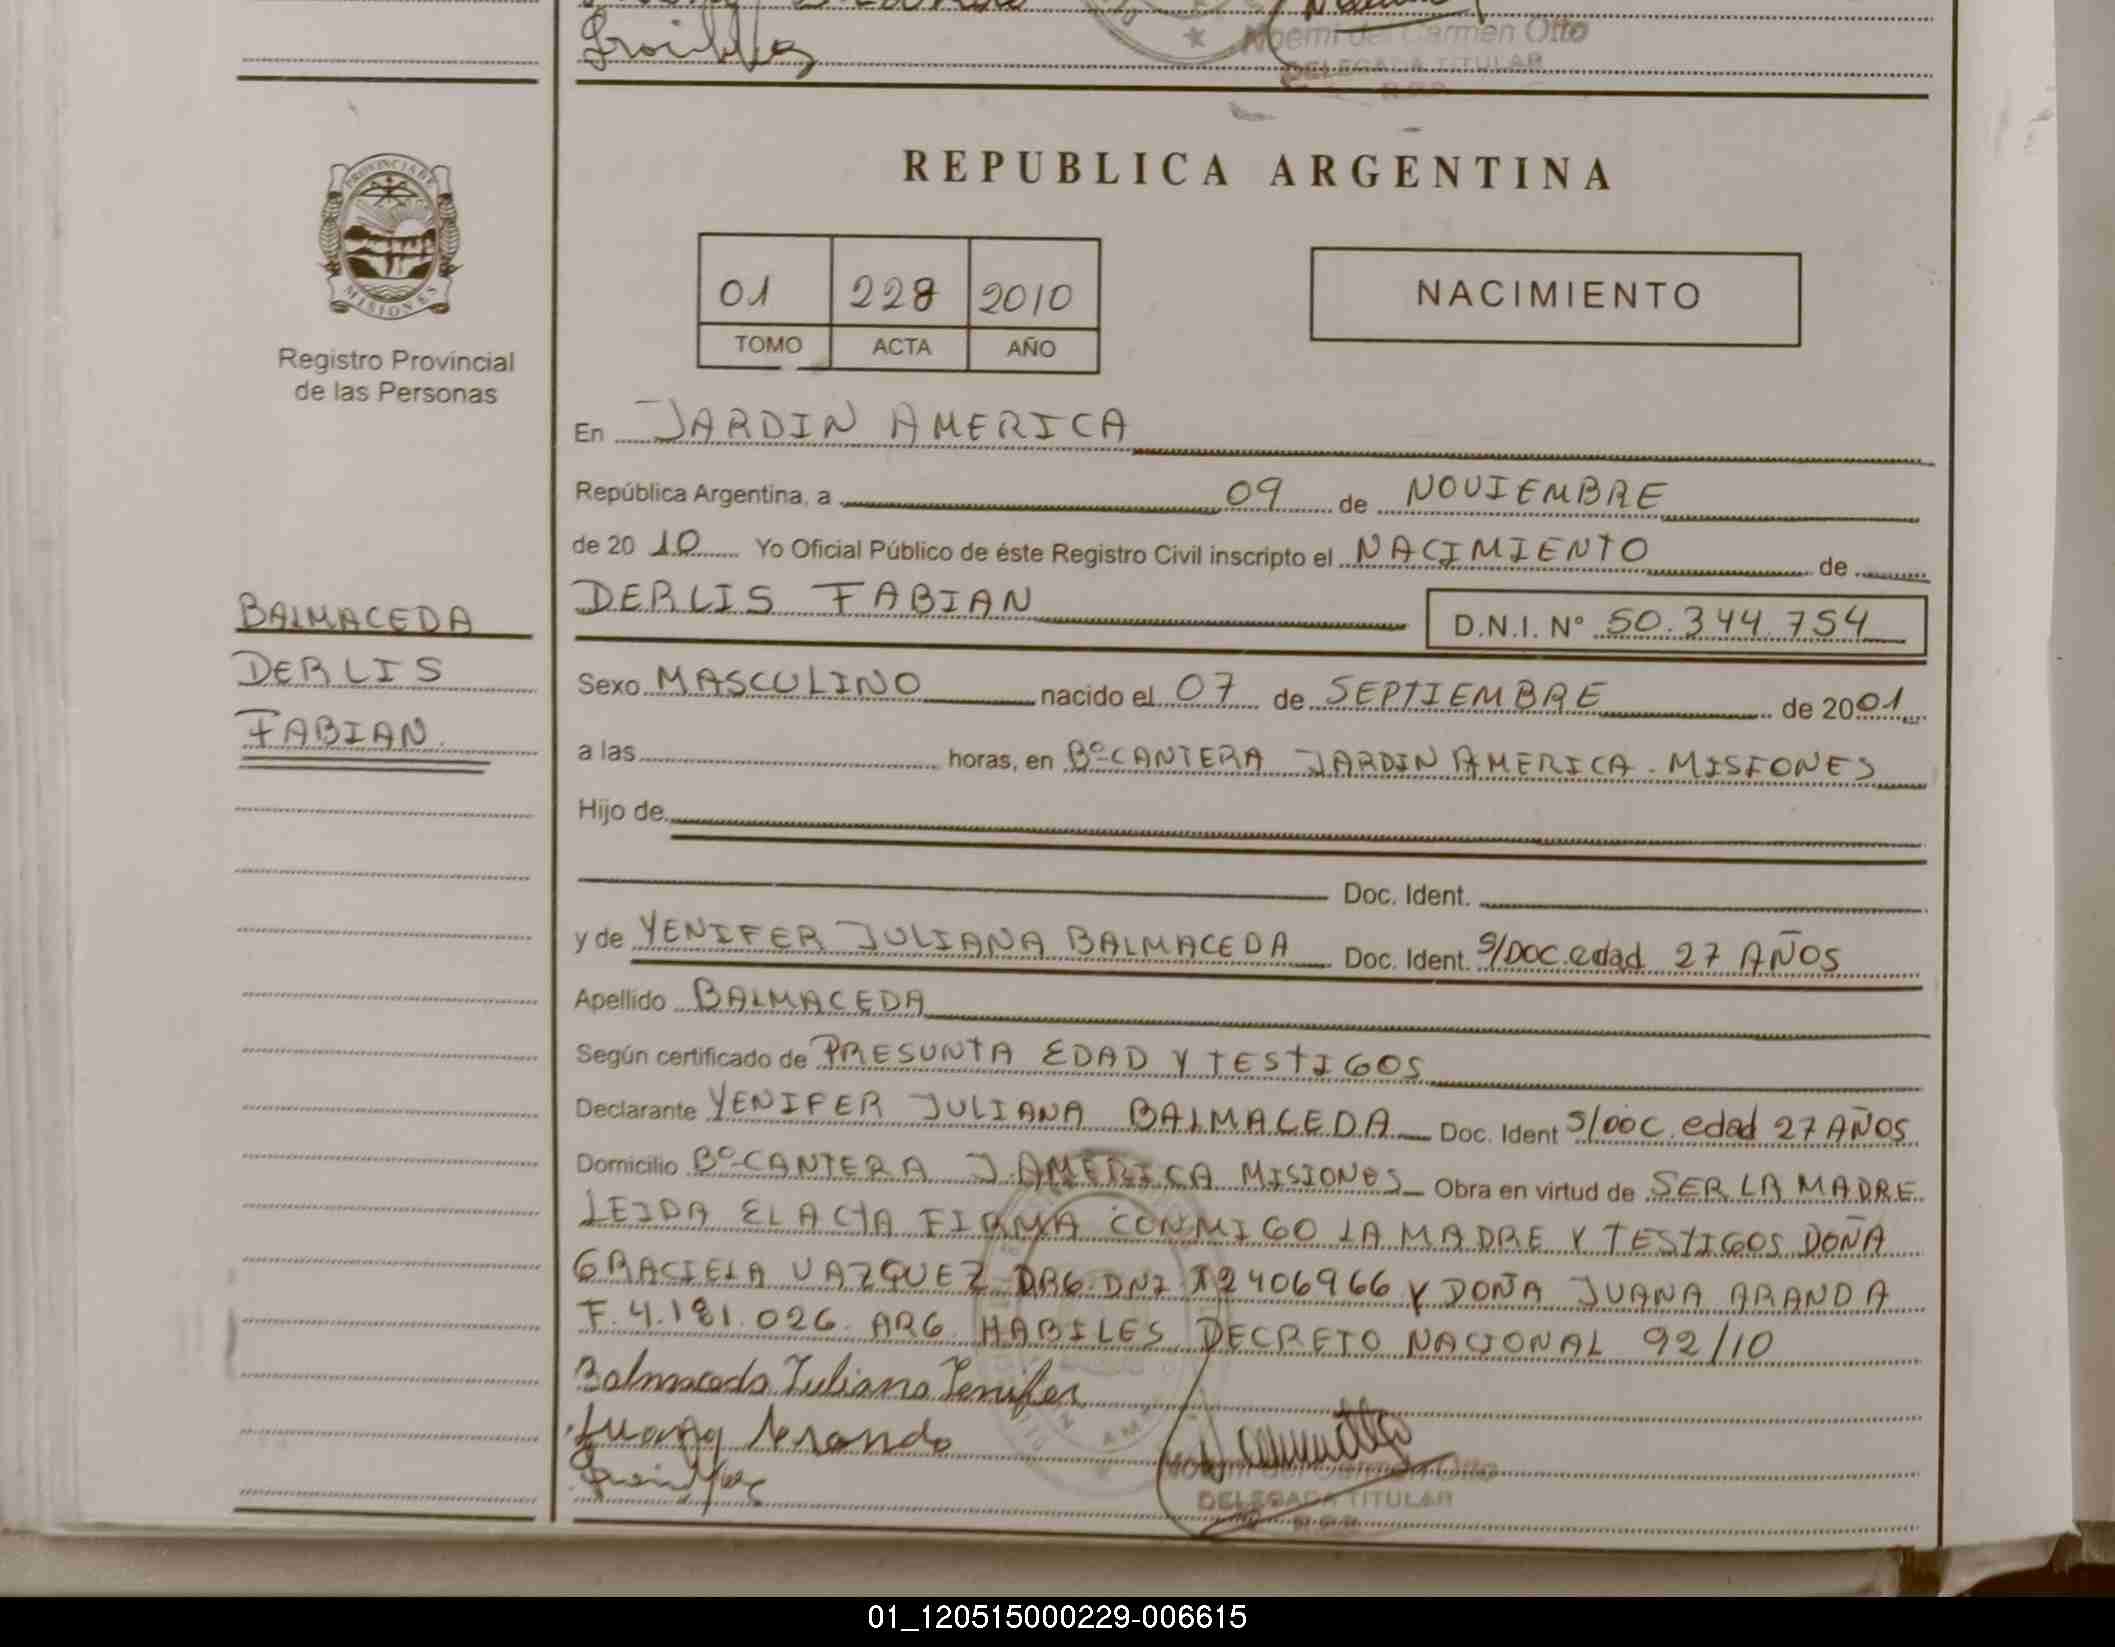 Noemi del Carmen Otto
DELEGADA TITULAR
PROVINCIA DE
MISIONES
Registro Provincial
de las Personas
BALMACEDA
DERLIS
FABIAN
REPUBLICA ARGENTINA
01 228 2010
TOMO ACTA AÑO
NACIMIENTO
En JARDIN AMERICA
República Argentina, a 09 de NOVIEMBRE
de 20 10 Yo Oficial Público de éste Registro Civil inscripto el NACIMIENTO de
DERLIS FABIAN D.N.I. Nº 50.344.754
Sexo MASCULINO nacido el 07 de SEPTIEMBRE de 2001
a las horas, en Bº CANTERA JARDIN AMERICA. MISIONES
Hijo de
Doc. Ident.
y de YENIFER JULIANA BALMACEDA Doc. Ident. S/DOC. edad 27 AÑOS
Apellido BALMACEDA
Según certificado de PRESUNTA EDAD Y TESTIGOS
Declarante YENIFER JULIANA BALMACEDA Doc. Ident S/DOC. edad 27 AÑOS
Domicilio Bº CANTERA J. AMERICA MISIONES Obra en virtud de SER LA MADRE
LEIDA EL ACTA FIRMA CONMIGO LA MADRE Y TESTIGOS DOÑA
GRACIELA VAZQUEZ DNI 12406966 Y DOÑA JUANA ARANDA
F. 4.181.026. ARG. HABILES DECRETO NACIONAL 92/10
Balmaceda Juliana Yenifer
Juana Aranda
Noemi del Carmen Otto
DELEGADA TITULAR
01_120515000229-006615